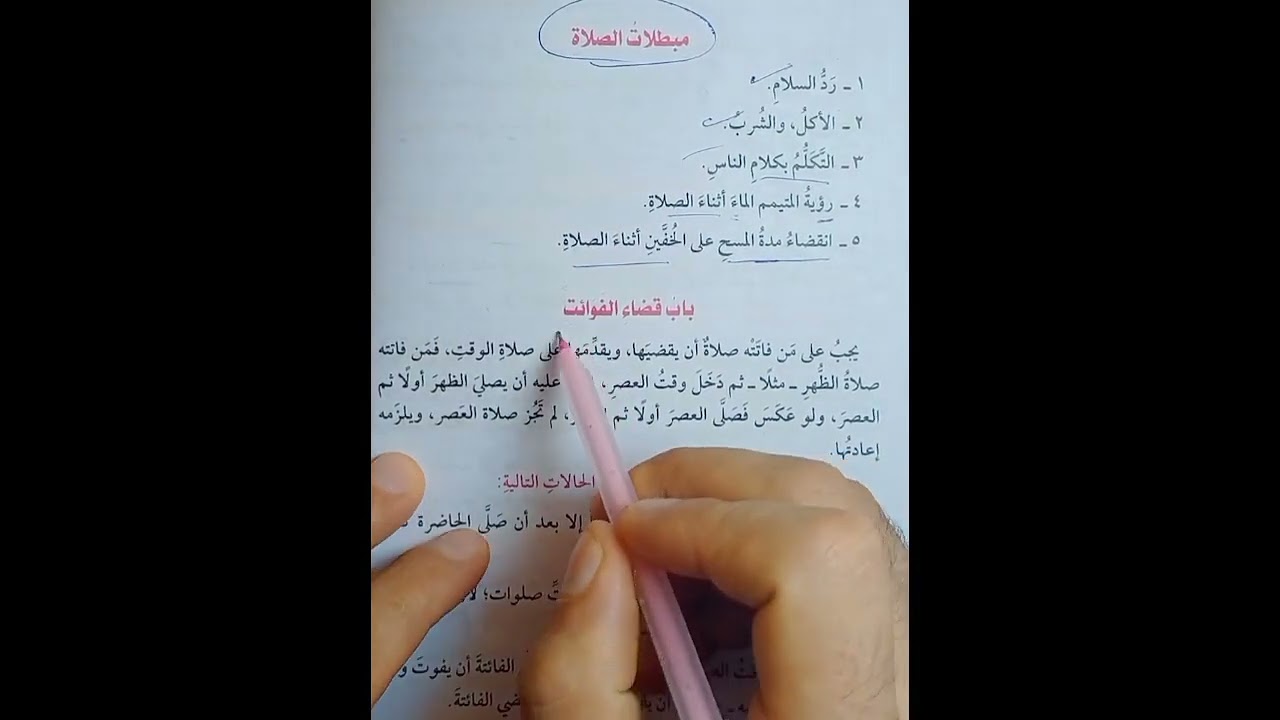 مبطلاتُ الصلاة
١ ـ رَدُّ السلامِ.
٢ ـ الأكلُ، والشُربُ.
٣ ـ التَّكَلُّمُ بكلامِ الناسِ.
٤ ـ رؤيةُ المتيمم الماءَ أثناءَ الصلاةِ.
٥ ـ انقضاءُ مدةُ المسحِ على الخُفَّينِ أثناءَ الصلاةِ.
بابُ قضاءِ الفوائت
يجبُ على مَن فاتَتْه صلاةٌ أن يقضيَها، ويقدِّمَها على صلاةِ الوقتِ، فَمَن فاتته
صلاةُ الظُّهرِ ـ مثلًا ـ ثم دَخَلَ وقتُ العصرِ، عليه أن يصليَ الظهرَ أولًا ثم
العصرَ، ولو عَكَسَ فَصَلَّى العصرَ أولًا ثم لم تَجُز صلاة العَصر، ويلزَمه
إعادتُها.
الحالاتِ التاليةِ:
إلا بعد أن صَلَّى الحاضرة
صلوات؛
الفائتةَ أن يفوتَ
الفائتةَ.